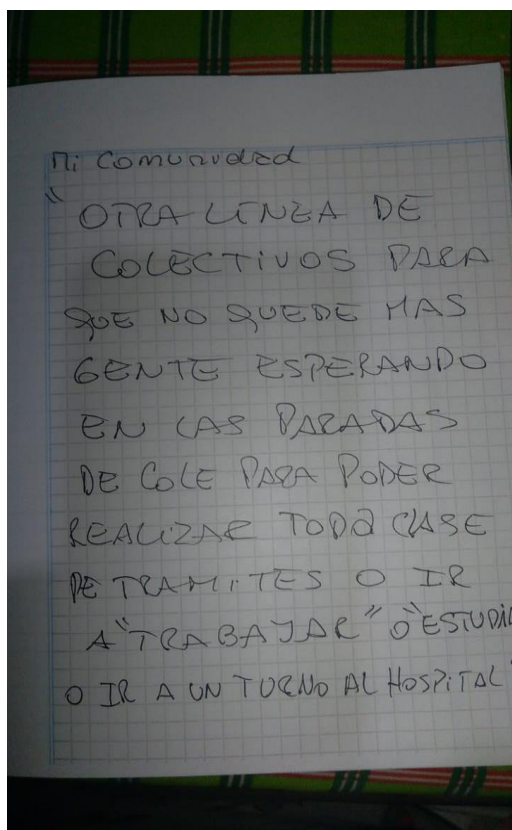 Mi Comunidad
"OTRA LINEA DE
COLECTIVOS PARA
QUE NO QUEDE MAS
GENTE ESPERANDO
EN LAS PARADAS
DE COLE PARA PODER
REALIZAR TODA CLASE
DE TRAMITES O IR
A "TRABAJAR" O "ESTUDIA
O IR A UN TURNO AL HOSPITAL"